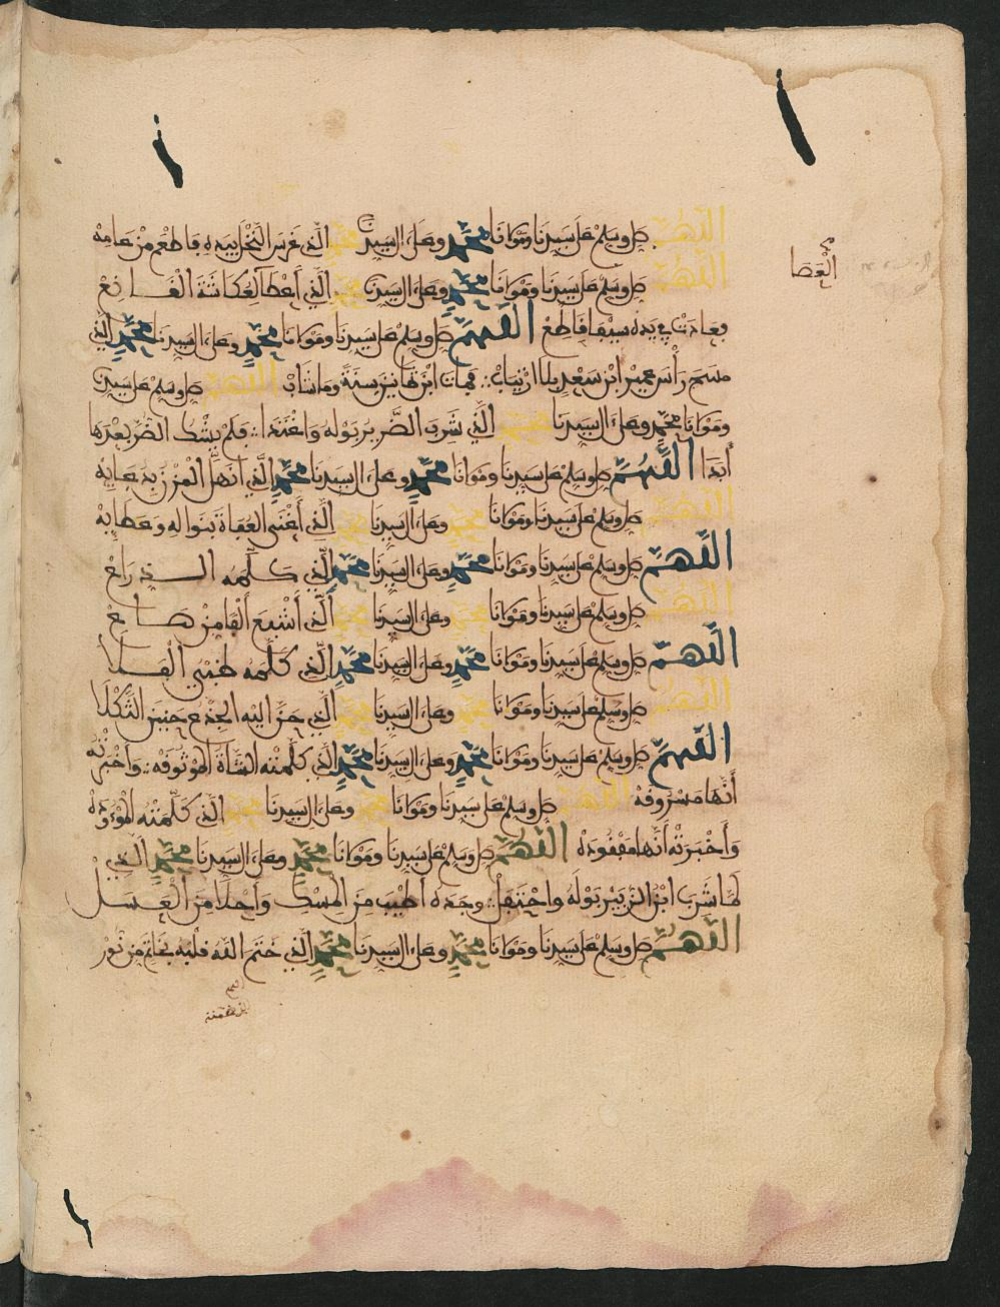 اللهم صل وسلم على سيدنا ومولانا محمد وعلى ال سيدنا محمد الذي غرس النخل بيده فاطعم من عامه
العصا
اللهم صل وسلم على سيدنا ومولانا محمد وعلى ال سيدنا محمد الذي أعطى لعكاشة
فعادت في يده سيفا قاطع اللهم صل وسلم على سيدنا ومولانا محمد وعلى ال سيدنا محمد الذي
مسح رأس عمير ابن سعد بلا ارتياب فمات ابن ثمانين سنة وما شاب اللهم صل وسلم على سيدنا
ومولانا محمد وعلى ال سيدنا محمد الذي شرب بوله فلم يشك الضر بعدها
أبدا اللهم صل وسلم على سيدنا ومولانا محمد وعلى ال سيدنا محمد الذي انهل المزن بدعائه
اللهم صل وسلم على سيدنا ومولانا محمد وعلى ال سيدنا محمد الذي أغنى العفاة بنواله وعطائه
اللهم صل وسلم على سيدنا ومولانا محمد وعلى ال سيدنا محمد الذي كلمه الذراع
اللهم صل وسلم على سيدنا ومولانا محمد وعلى ال سيدنا محمد الذي أشبع ألفا من صاع
اللهم صل وسلم على سيدنا ومولانا محمد وعلى ال سيدنا محمد الذي كلمه ظبي الفلا
اللهم صل وسلم على سيدنا ومولانا محمد وعلى ال سيدنا محمد الذي حن اليه الجذع حنين الثكلا
اللهم صل وسلم على سيدنا ومولانا محمد وعلى ال سيدنا محمد الذي كلمته الشاة الموثوقة وأخبرته
أنها مسروقة اللهم صل وسلم على سيدنا ومولانا محمد وعلى ال سيدنا محمد الذي كلمته الموءودة
وأخبرته أنها مفقودة اللهم صل وسلم على سيدنا ومولانا محمد وعلى ال سيدنا محمد الذي
لما شرب ابن الزبير بوله واحتفل وجده أطيب من المسك وأحلا من العسل
اللهم صل وسلم على سيدنا ومولانا محمد وعلى ال سيدنا محمد الذي ختم الله قلبه بخاتم من نور